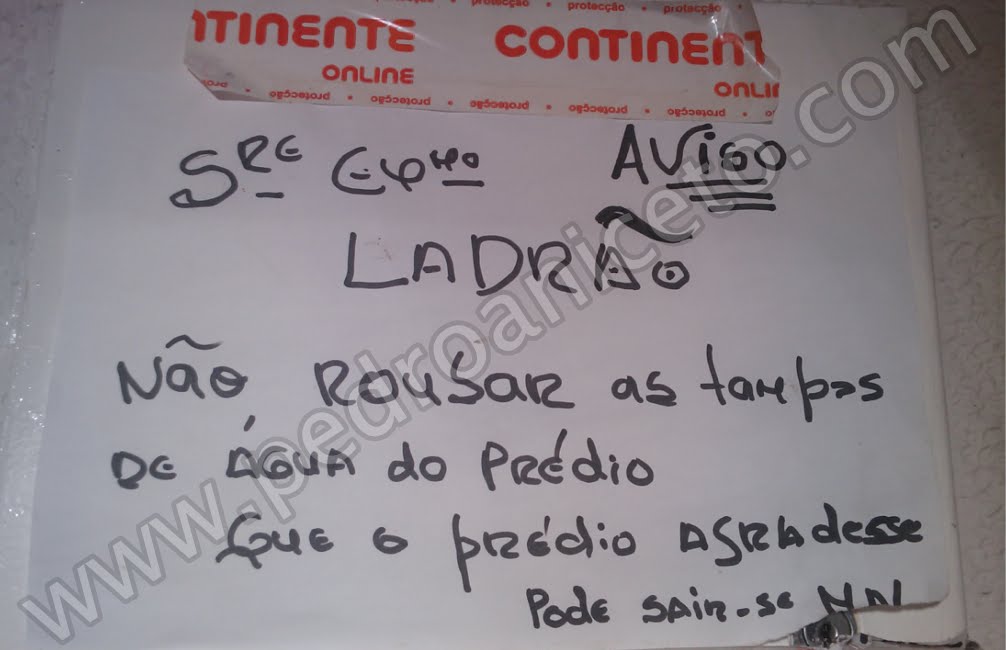 protecção • protecção • protecção
TINENTE CONTINENT
ONLINE ONLI
protecção • protecção • protecção • protecção • protecção
SRE EXMO AVISO
LADRÃO
Não ROUBAR as tampas
DE ÁGUA do Prédio
QUE o prédio AGRADESSE
Pode SAIR-SE MAL
www.pedroaniceto.com